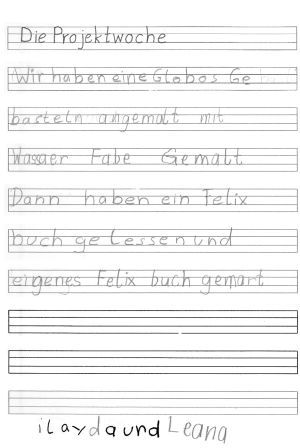 Die Projektwoche
Wir haben eine Globos Ge
basteln angemalt mit
Wasser Fabe Gemalt
Dann haben ein Felix
buch ge lessen und
eigenes Felix buch gemart
ilayda und Leana